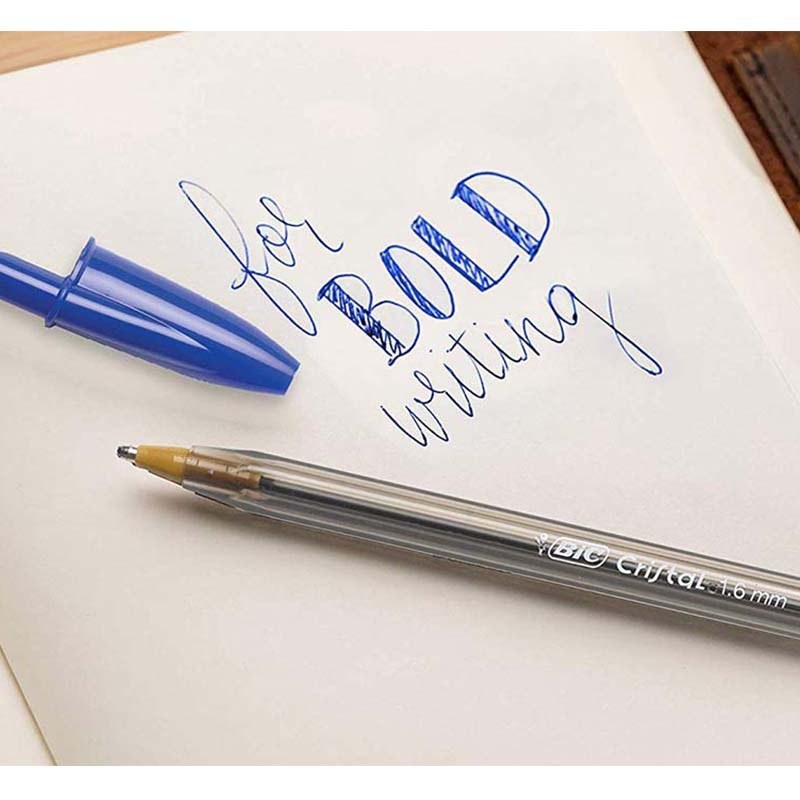 for
BOLD
writing
BIC Cristal 1.6 mm